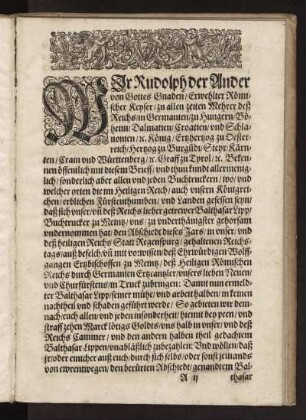 WIr Rudolph der Ander
von Gottes Gnaden / Erwehlter Römi-
scher Keyser / zu allen zeiten Mehrer deß
Reichs / in Germanien / zu Hungern / Bö-
heim / Dalmatien / Croatien / und Schla-
uonien / ꝛc. König / Ertzhertzog zu Oester-
reich / Hertzog zu Burgūdi / Steyr / Kärn-
ten / Crain und Wirttenberg / ꝛc. Graff zu Tyrol / ꝛc. Beken-
nen öffentlich mit diesem Brieff / und thun kundt allermenig-
lich / sonderlich aber allen und jeden Buchtruckern / wo / und
welcher orten die im Heiligen Reich / auch unsern Königrei-
chen / erblichen Fürstenthumben / und Landen gesessen seyn /
daß sich unser / uñ deß Reichs lieber getrewer Balthasar Lipp /
Buchtrucker zu Mentz / uns / zu underthänigster gehorsam
undernommen hat / den Abschiedt dieses Jars / in unser / und
deß heiligen Reichs Statt Regenspurg / gehaltenen Reichs-
tags / auß befelch / uñ mit vorwissen deß Ehrwürdigen Wolff-
gangen Ertzbischoffen zu Mentz / deß Heiligen Römischen
Reichs durch Germanien Ertzcantzler / unsers lieben Neuen /
und Churfürstens / in Truck zubringen: Damit nun ermeld-
ter Balthasar Lipp / seiner mühe / und arbeit halben / in keinen
nachtheil und schaden geführt werde / So gebieten wir dem-
nach / euch allen / und jeden insonderheit / hiemit bey peen / und
straff zehen Marck lötigs Golds / uns halb in unser / und deß
Reichs Cammer / und den andern halben theil gedachtem
Balthasar Lippen / unabläßlich zubezahlen: Und wöllen / daß
jr / oder einicher auß euch / durch sich selbs / oder sonst jemands
von ewrentwegen / den berürten Abschiedt / genandtem Bal-
A ij thasar